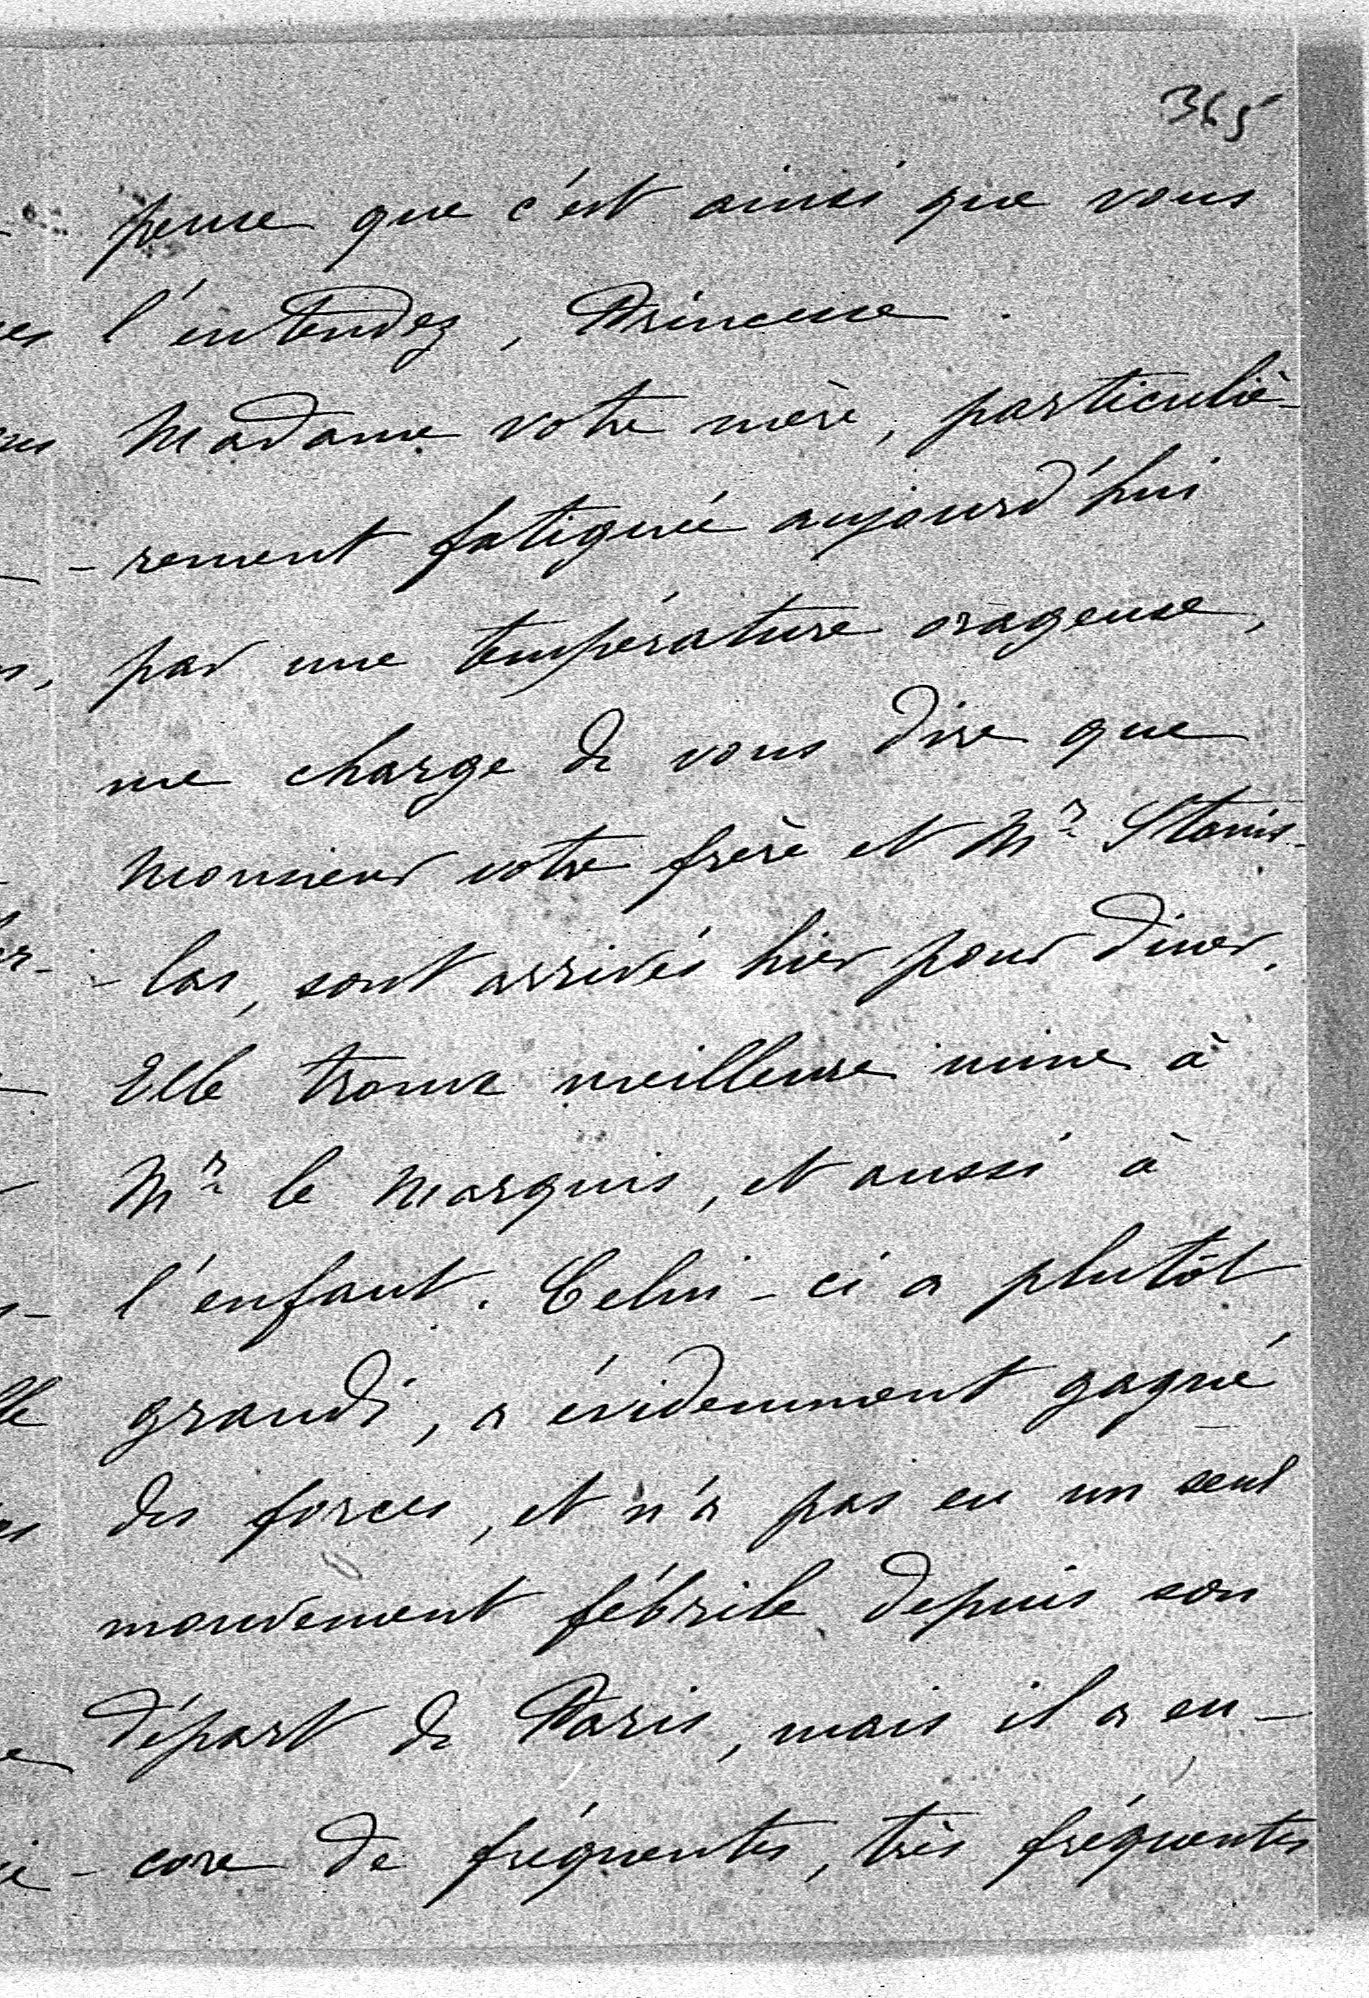 365
pense que c'est ainsi que vous
l'entendez, Princesse.
Madame votre mère, particuliè-
-rement fatiguée aujourd'hui
par une température orageuse,
me charge de vous dire que
Monsieur votre frère et Mr Stanis-
-las, sont arrivés hier pour diner.
Elle trouve meilleure mine à
Mr le Marquis, et aussi à
l'enfant. Celui-ci a plutôt
grandi, a évidemment gagné
des forces, et n'a pas eu un seul
mouvement fébrile depuis son
départ de Paris, mais il a en-
-core de fréquentes, très fréquentes